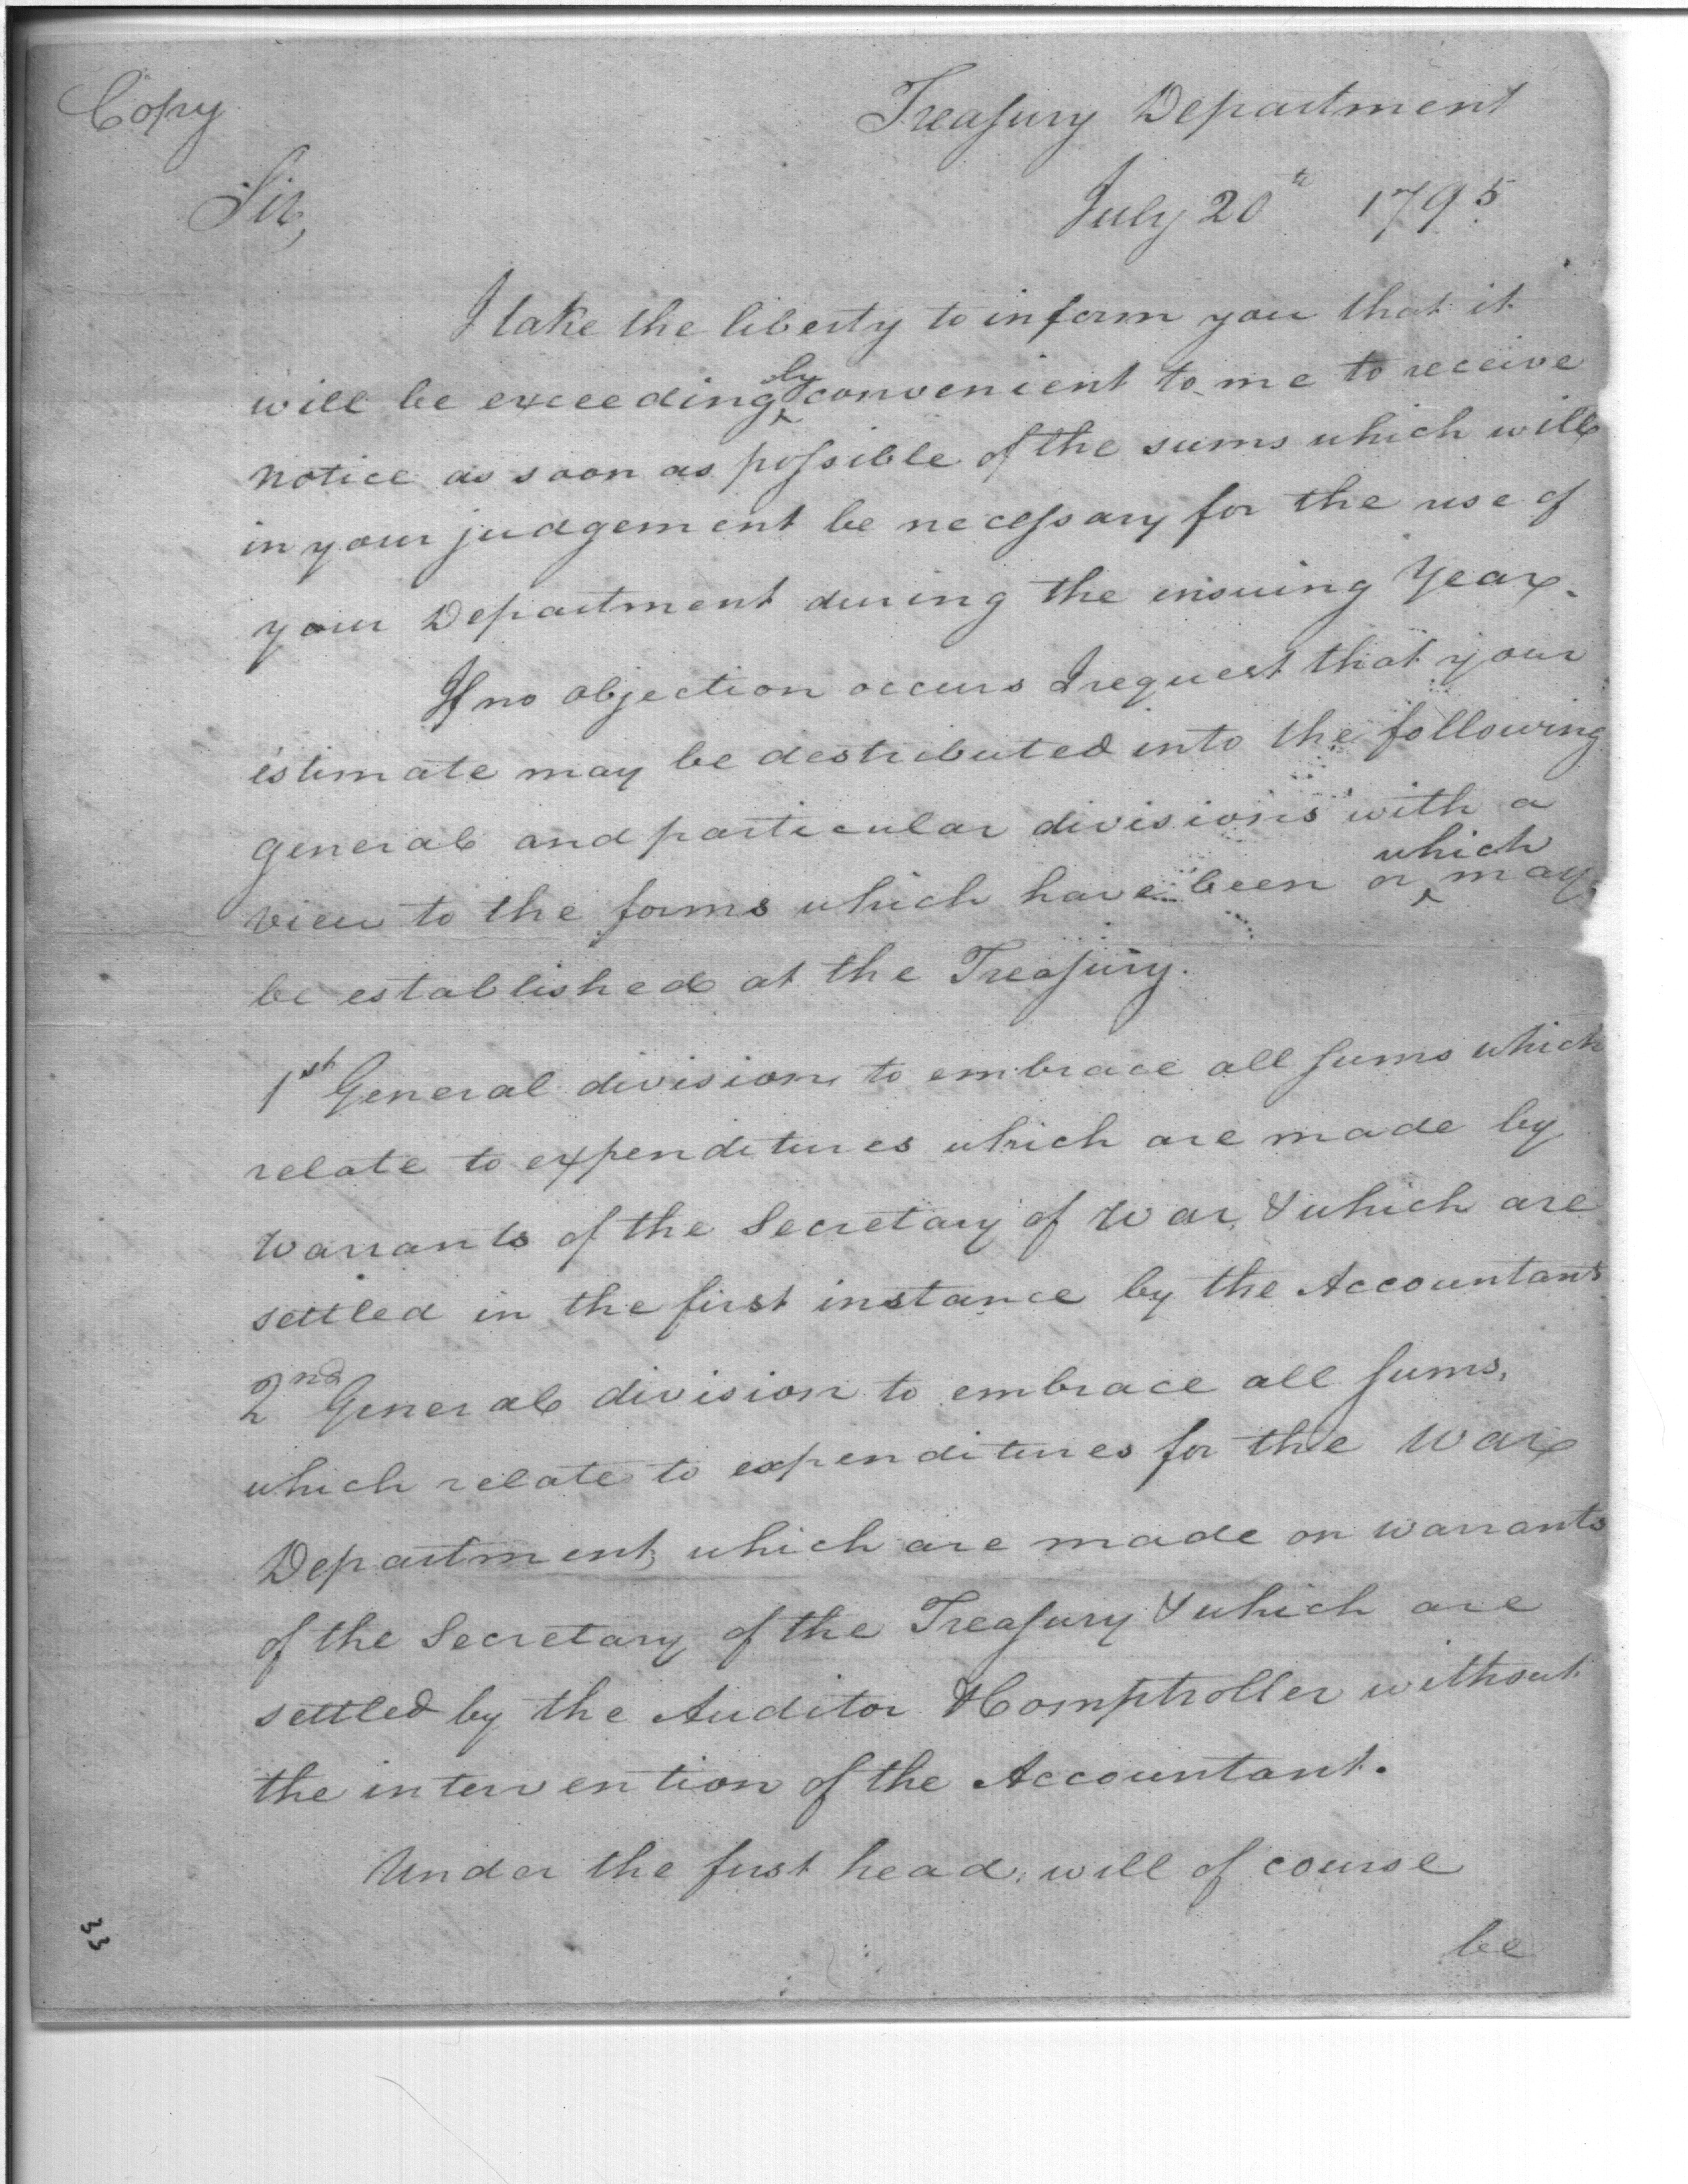 Copy
Treasury Department
Sir,
July 20th 1795
I take the liberty to inform you that it
will be exceedingly convenient to me to receive
notice as soon as possible of the sums which will
in your judgement be necessary for the use of
your Department during the ensuing Year.
If no objection occurs I request that your
estimate may be destributed into the following
general and particular divisions with a
view to the forms which have been or which may
be established at the Treasury.
1st General division, to embrace all sums which
relate to expenditures which are made by
warrants of the Secretary of War, & which are
settled in the first instance by the Accountant
2nd General division to embrace all sums,
which relate to expenditures for the War
Department, which are made on warrants
of the Secretary of the Treasury & which are
settled by the Auditor & Comptroller without
the intervention of the Accountant.
Under the first head, will of course
be
33